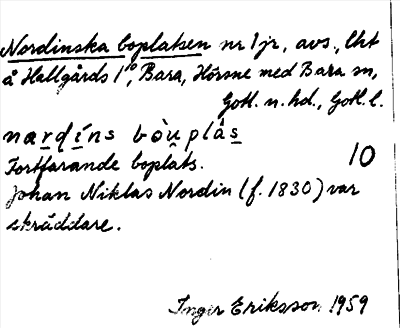 Nordinska boplatsen nr 1 jr, avs., lht
å Hallgårds 1¹⁰, Bara, Hörsne med Bara sn,
Gotl. n. hd., Gotl. l.
nạrdíns bòu̯plås
Fortfarande boplats. 10
Johan Niklas Nordin (f. 1830) var
skräddare.
Inger Eriksson 1959